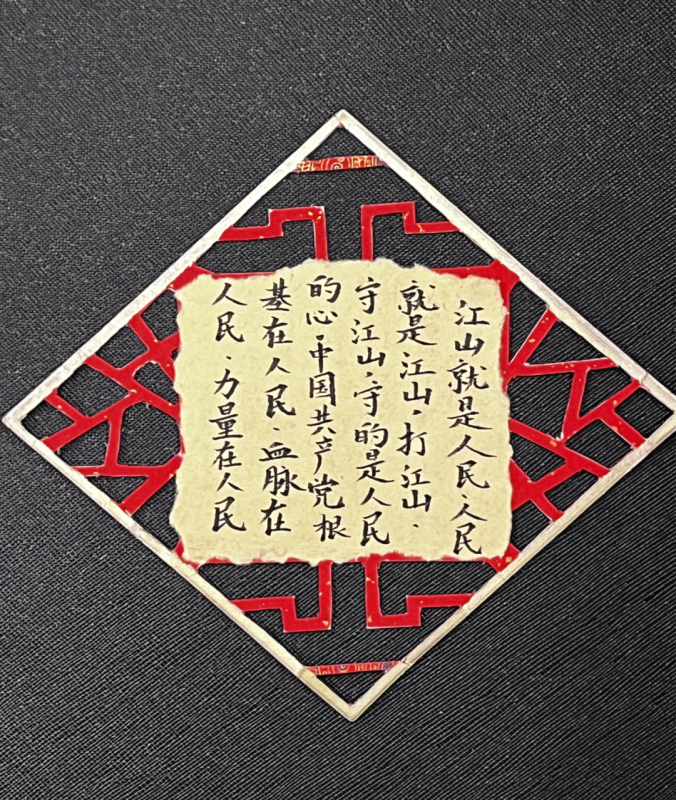 江山就是人民、人民
就是江山,打江山、
守江山,守的是人民
的心,中国共产党根
基在人民、血脉在
人民、力量在人民